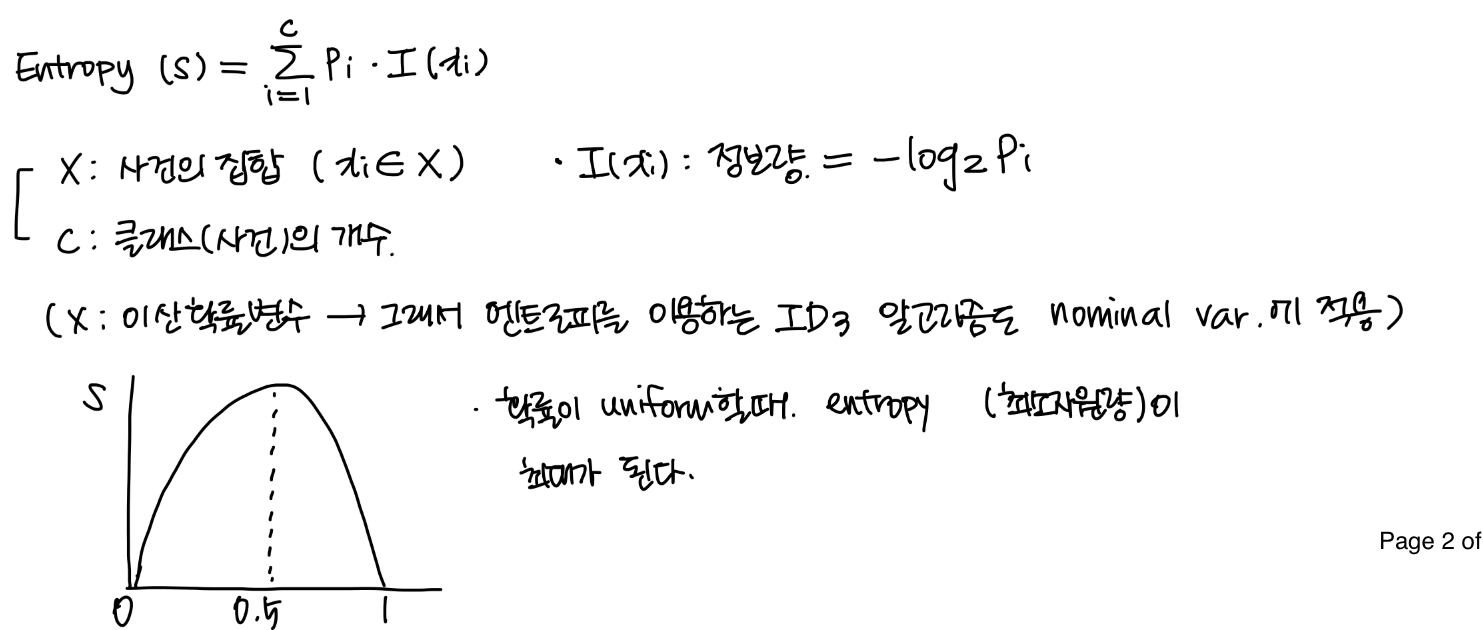 Entropy (S) = ∑_{i=1}^{C} Pi · I(xi)
X : 사건의 집합 (xi ∈ X) · I(xi) : 정보량. = -log₂ Pi
C : 클래스(사건)의 개수.
(X : 이산확률변수 → 그래서 엔트로피를 이용하는 ID3 알고리즘도 nominal var.에 적용)
S
· 확률이 uniform할때. entropy (최소자원량)이
최대가 된다.
Page 2 of
0 0.5 1